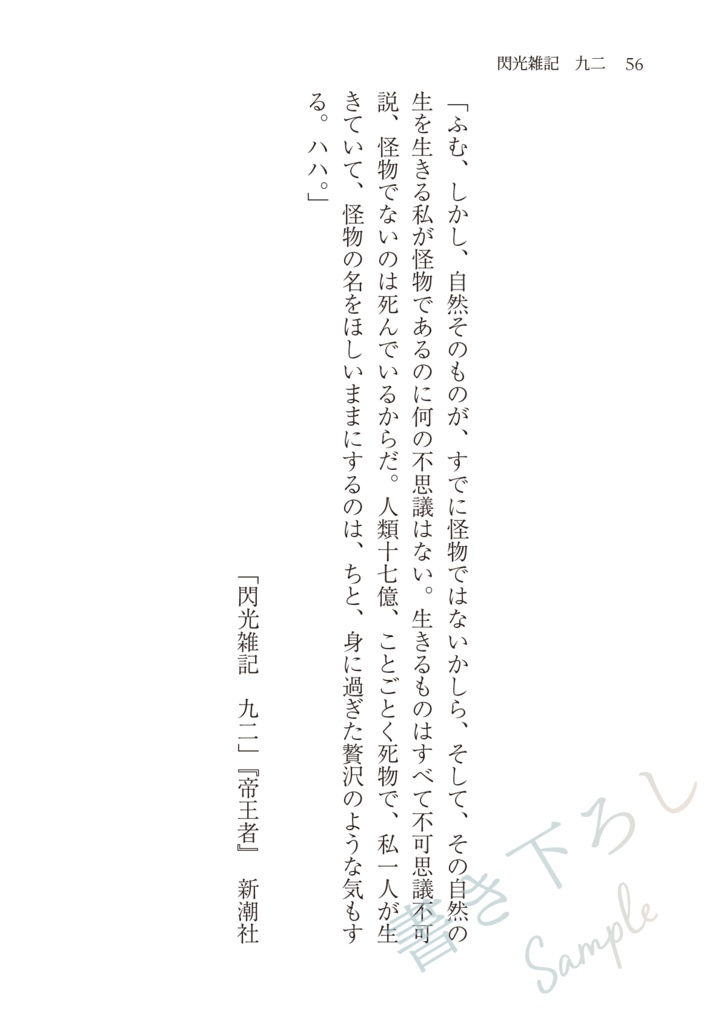 閃光雑記　九二　56
「ふむ、しかし、自然そのものが、すでに怪物ではないかしら、そして、その自然の
生を生きる私が怪物であるのに何の不思議はない。生きるものはすべて不可思議不可
説、怪物でないのは死んでいるからだ。人類十七億、ことごとく死物で、私一人が生
きていて、怪物の名をほしいままにするのは、ちと、身に過ぎた贅沢のような気もす
る。ハハ。」
「閃光雑記　九二」『帝王者』　新潮社
書き下ろし
Sample